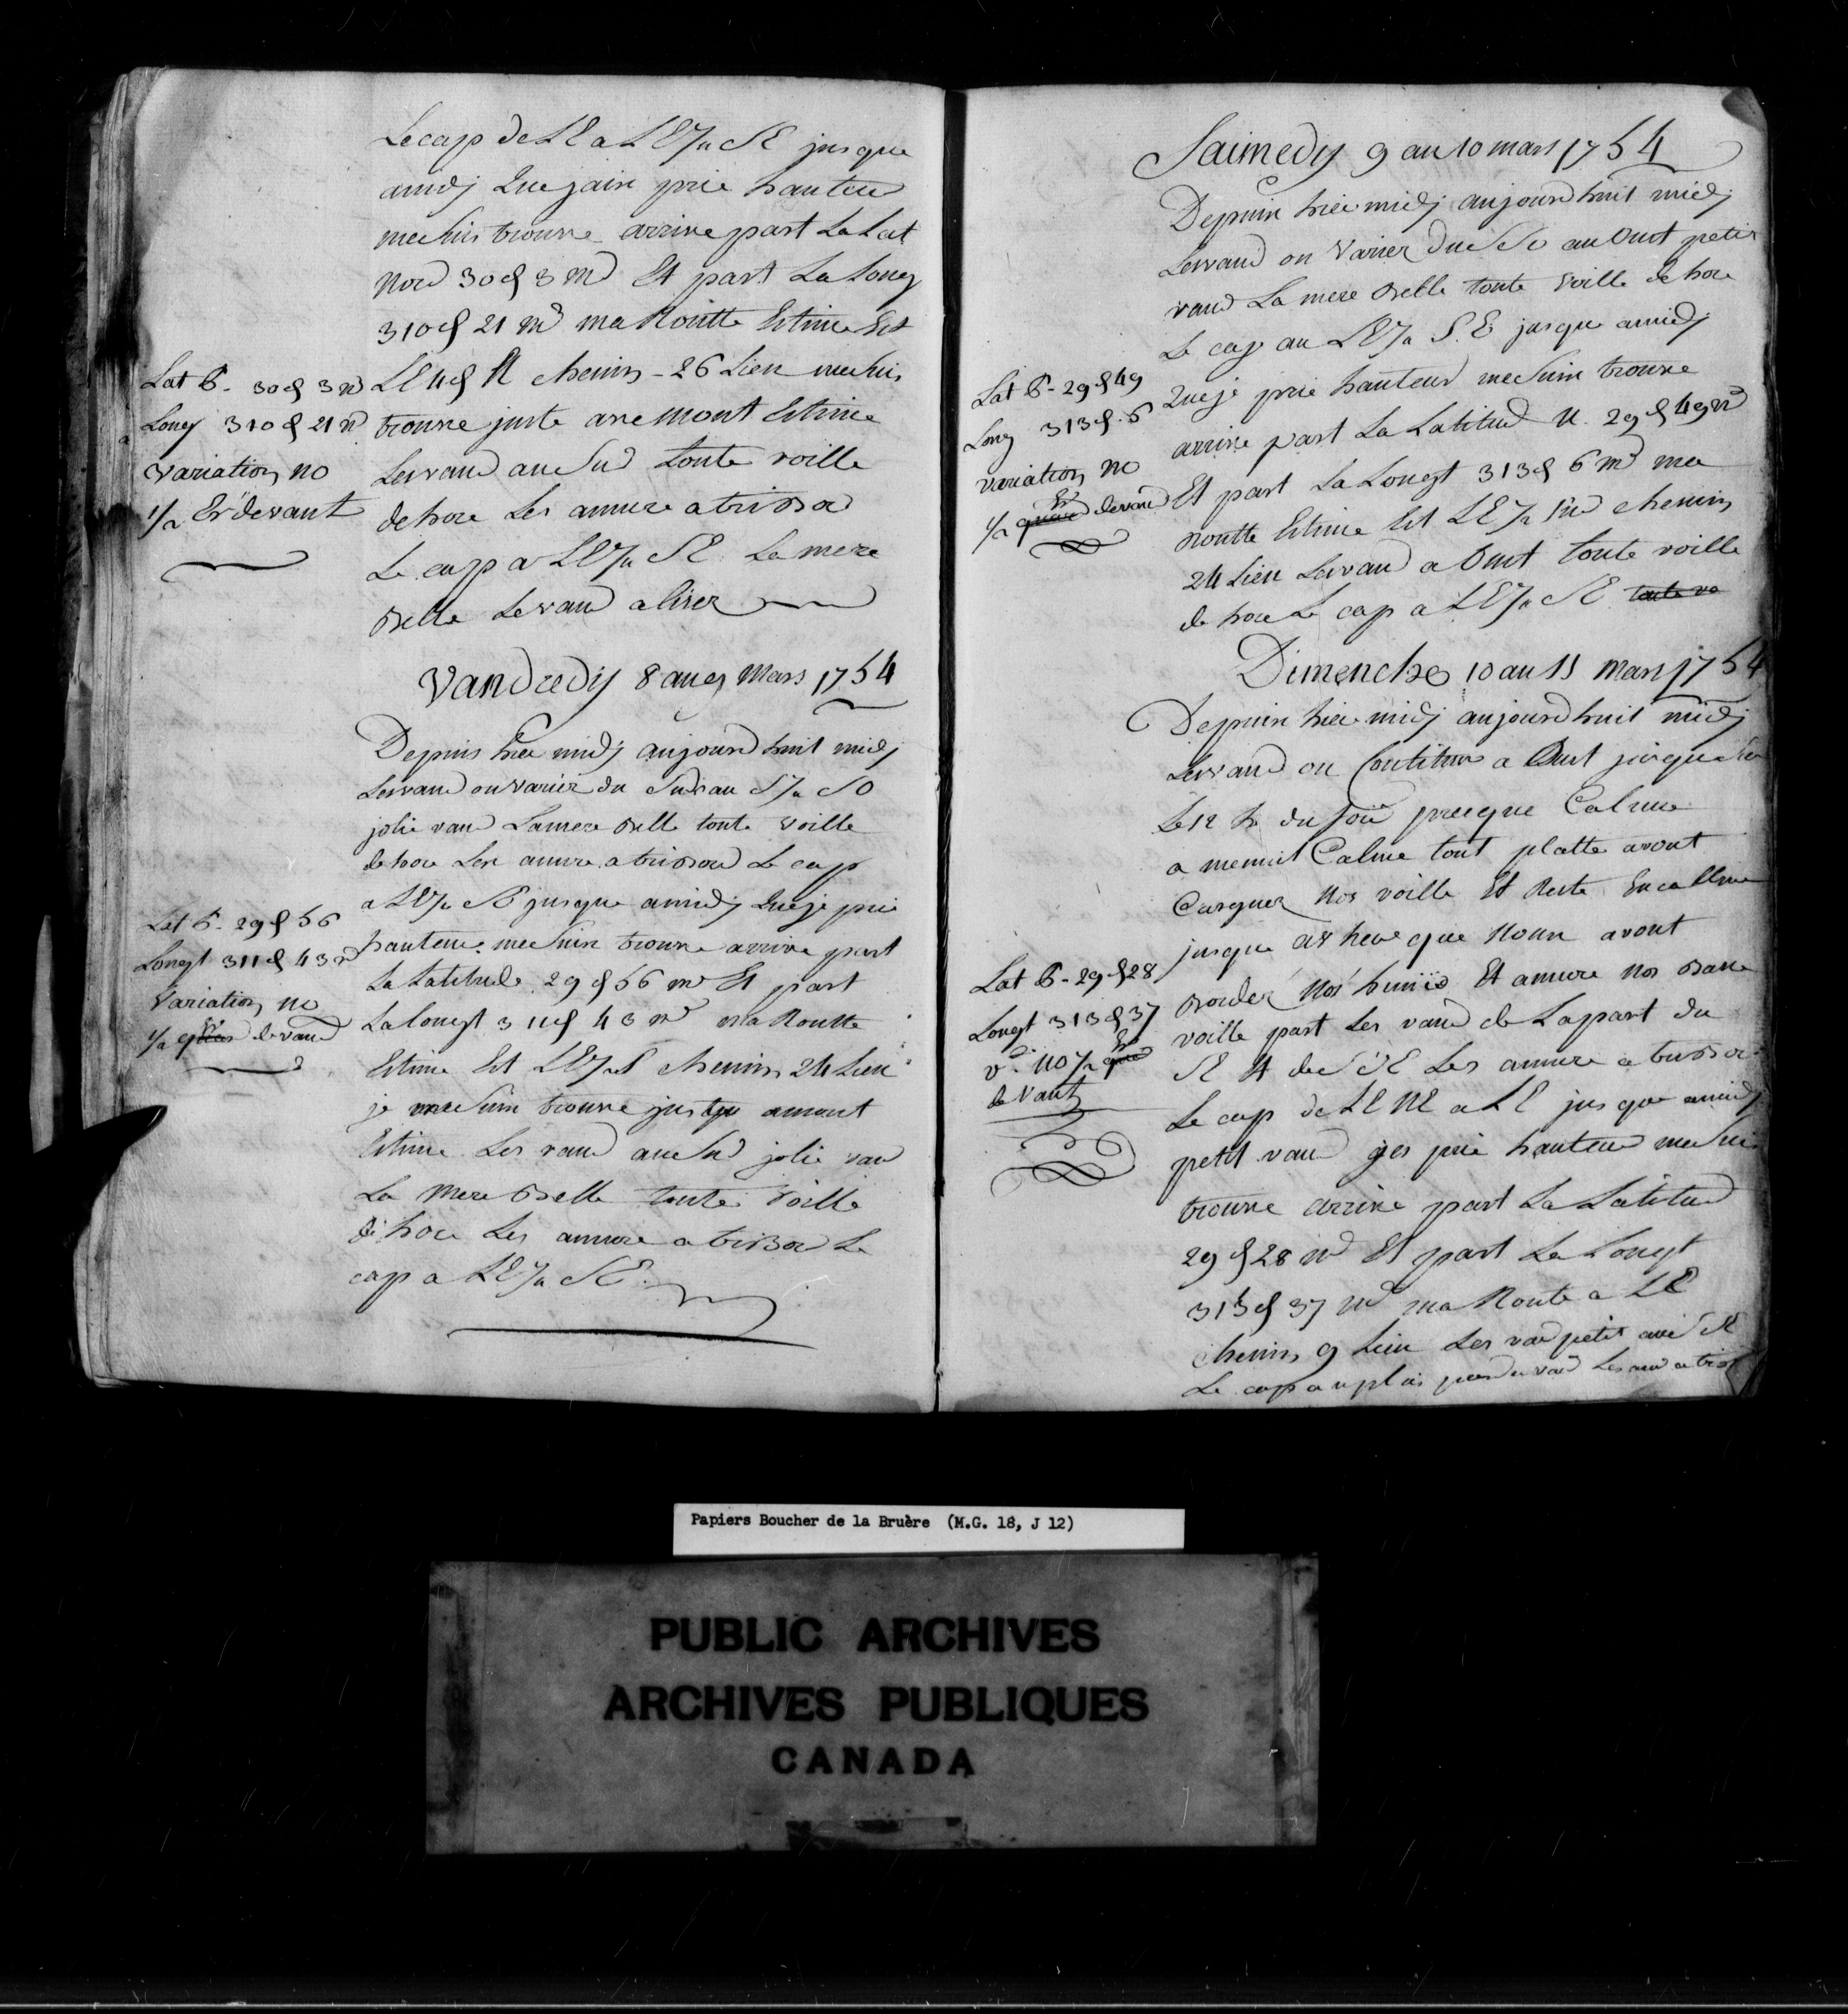 Le cap de LE a LE ¼ SE jusque
amidj Que jain prie hauteur
mechuis trouve arrive part La Lat
Nord 30 d 3 md Et part La Long
310 d 21 md ma Routte Estime Est
LE 4 d N chemin - 26 Lieu mechuis
trouve juste ave mont Estime
Lesvand au Sud toute voille
dehore Les amure a tribord
Le cap a LE ¼ SE La mere
belle Levand a liser
Lat P. 30 d 3 md
Long 310 d 21 md
variation no
1/2 Er devant
Vandredy 8 au 9 Mars 1754
Depuis hier midj aujourd huit midj
Lesvand on varier du Sud au S ¼ SO
jolie vand La mere belle toute voille
dehore Les amure a tribord Le cap
a LE ¼ SE jusque amidj Que je prie
hauteure mechuis trouve arrive part
La Latitude 29 d 56 md Et part
La longt 311 d 43 md ma Routte
Estime Est LE ¼ S chemin 24 Lieu
je me suis trouve juste amont
Estime Les vand au Sud jolie vand
La Mere belle toute voille
dehore Les amure a tribord Le
cap a LE ¼ SE
Lat P. 29 d 56
Longt 311 d 43 md
Variation no
1/2 devand
Saimedy 9 au 10 mars 1754
Depuis hier midj aujourd huit midj
Lesvand on varier du SO au Oust petit
vand La mere belle toute voille dehore
Le cap au LE ¼ S.E jusque amidj
Que je prie hauteur me suis trouve
arrive part La Latitud N. 29 d 49 md
Et part La Longt 313 d 6 md ma
Routte Estime Est LE ¼ Sud chemin
24 Lieu Levand a Oust toute voille
dehore Le cap a LE ¼ SE toute vo
Lat P. 29 d 49
Long 313 d. 6
variation no
1/2 Er devand
Dimenche 10 au 11 mars 1754
Depuis hier midj aujourd huit midj
Lesvand on Contitnue a Oust jusque
Le 12 h du soir presque Calme
a menuit Calme tout platte avont
Carguer Nos voille Et Reste En callme
jusque a 8 heure que Noun avont
border Nos huniè Et amure Nos basse
voille part Les vand de La part du
SE Et de SSE Les amure a tribor
Le cap de LE NE a LE jusque amidj
petit vand jes prie hauteur me sui
trouve arrive part La Latitud
29 d 28 md Et part La Longt
313 d 37 md ma Route a LE
chemin 9 Lieu Les vand petit au SE
Le cap au plus pres du vand Les amu a trib
Lat P. 29 d 28
Longt 313 d 37
Von. NO ½ Er
de Vant
Papiers Boucher de la Bruère (M.G. 18, J 12)
PUBLIC ARCHIVES
ARCHIVES PUBLIQUES
CANADA